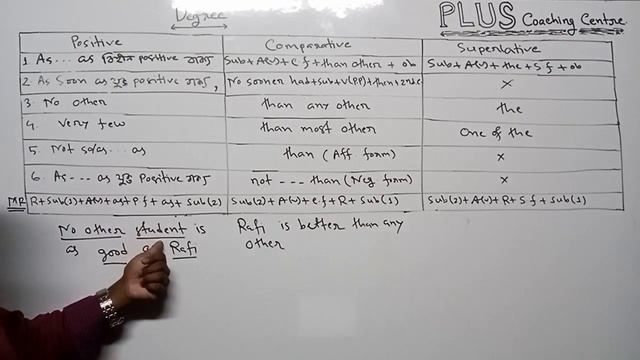 Degree
PLUS Coaching Centre
Positive Comparative Superlative
1. As... as বিহীন positive বাক্য Sub + A(v) + C f + than other + ob Sub + A(v) + the + S f + ob
2. As Soon as যুক্ত positive বাক্য, No sooner had + sub + v(pp) + then + 2nd c ×
3. No other than any other the
4. Very few than most other One of the
5. Not so/as ... as than (Aff form) ×
6. As --- as যুক্ত Positive বাক্য not --- than (Neg form) ×
MR R + Sub(1) + A(v) + as + P f + as + Sub(2) Sub(2) + A(v) + c.f + R + Sub(1) Sub(2) + A(v) + R + S f + Sub(1)
No other student is Rafi is better than any
as good as Rafi other